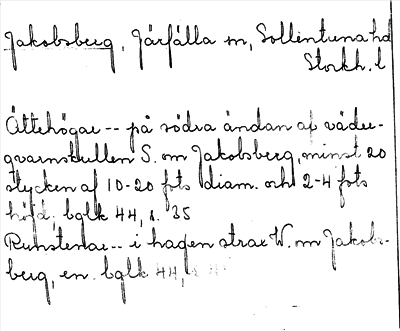 Jakobsberg, Järfälla sn, Sollentuna hd
Stockh. l
Ättehögar -- på södra ändan af väder-
qvarnskullen S. om Jakobsberg, minst 20
stycken af 10-20 fots diam. och 2-4 fots
höjd; bglk 44, s. 35
Runstenar -- i hagen strax W. om Jakobs-
berg, en. bglk 44,